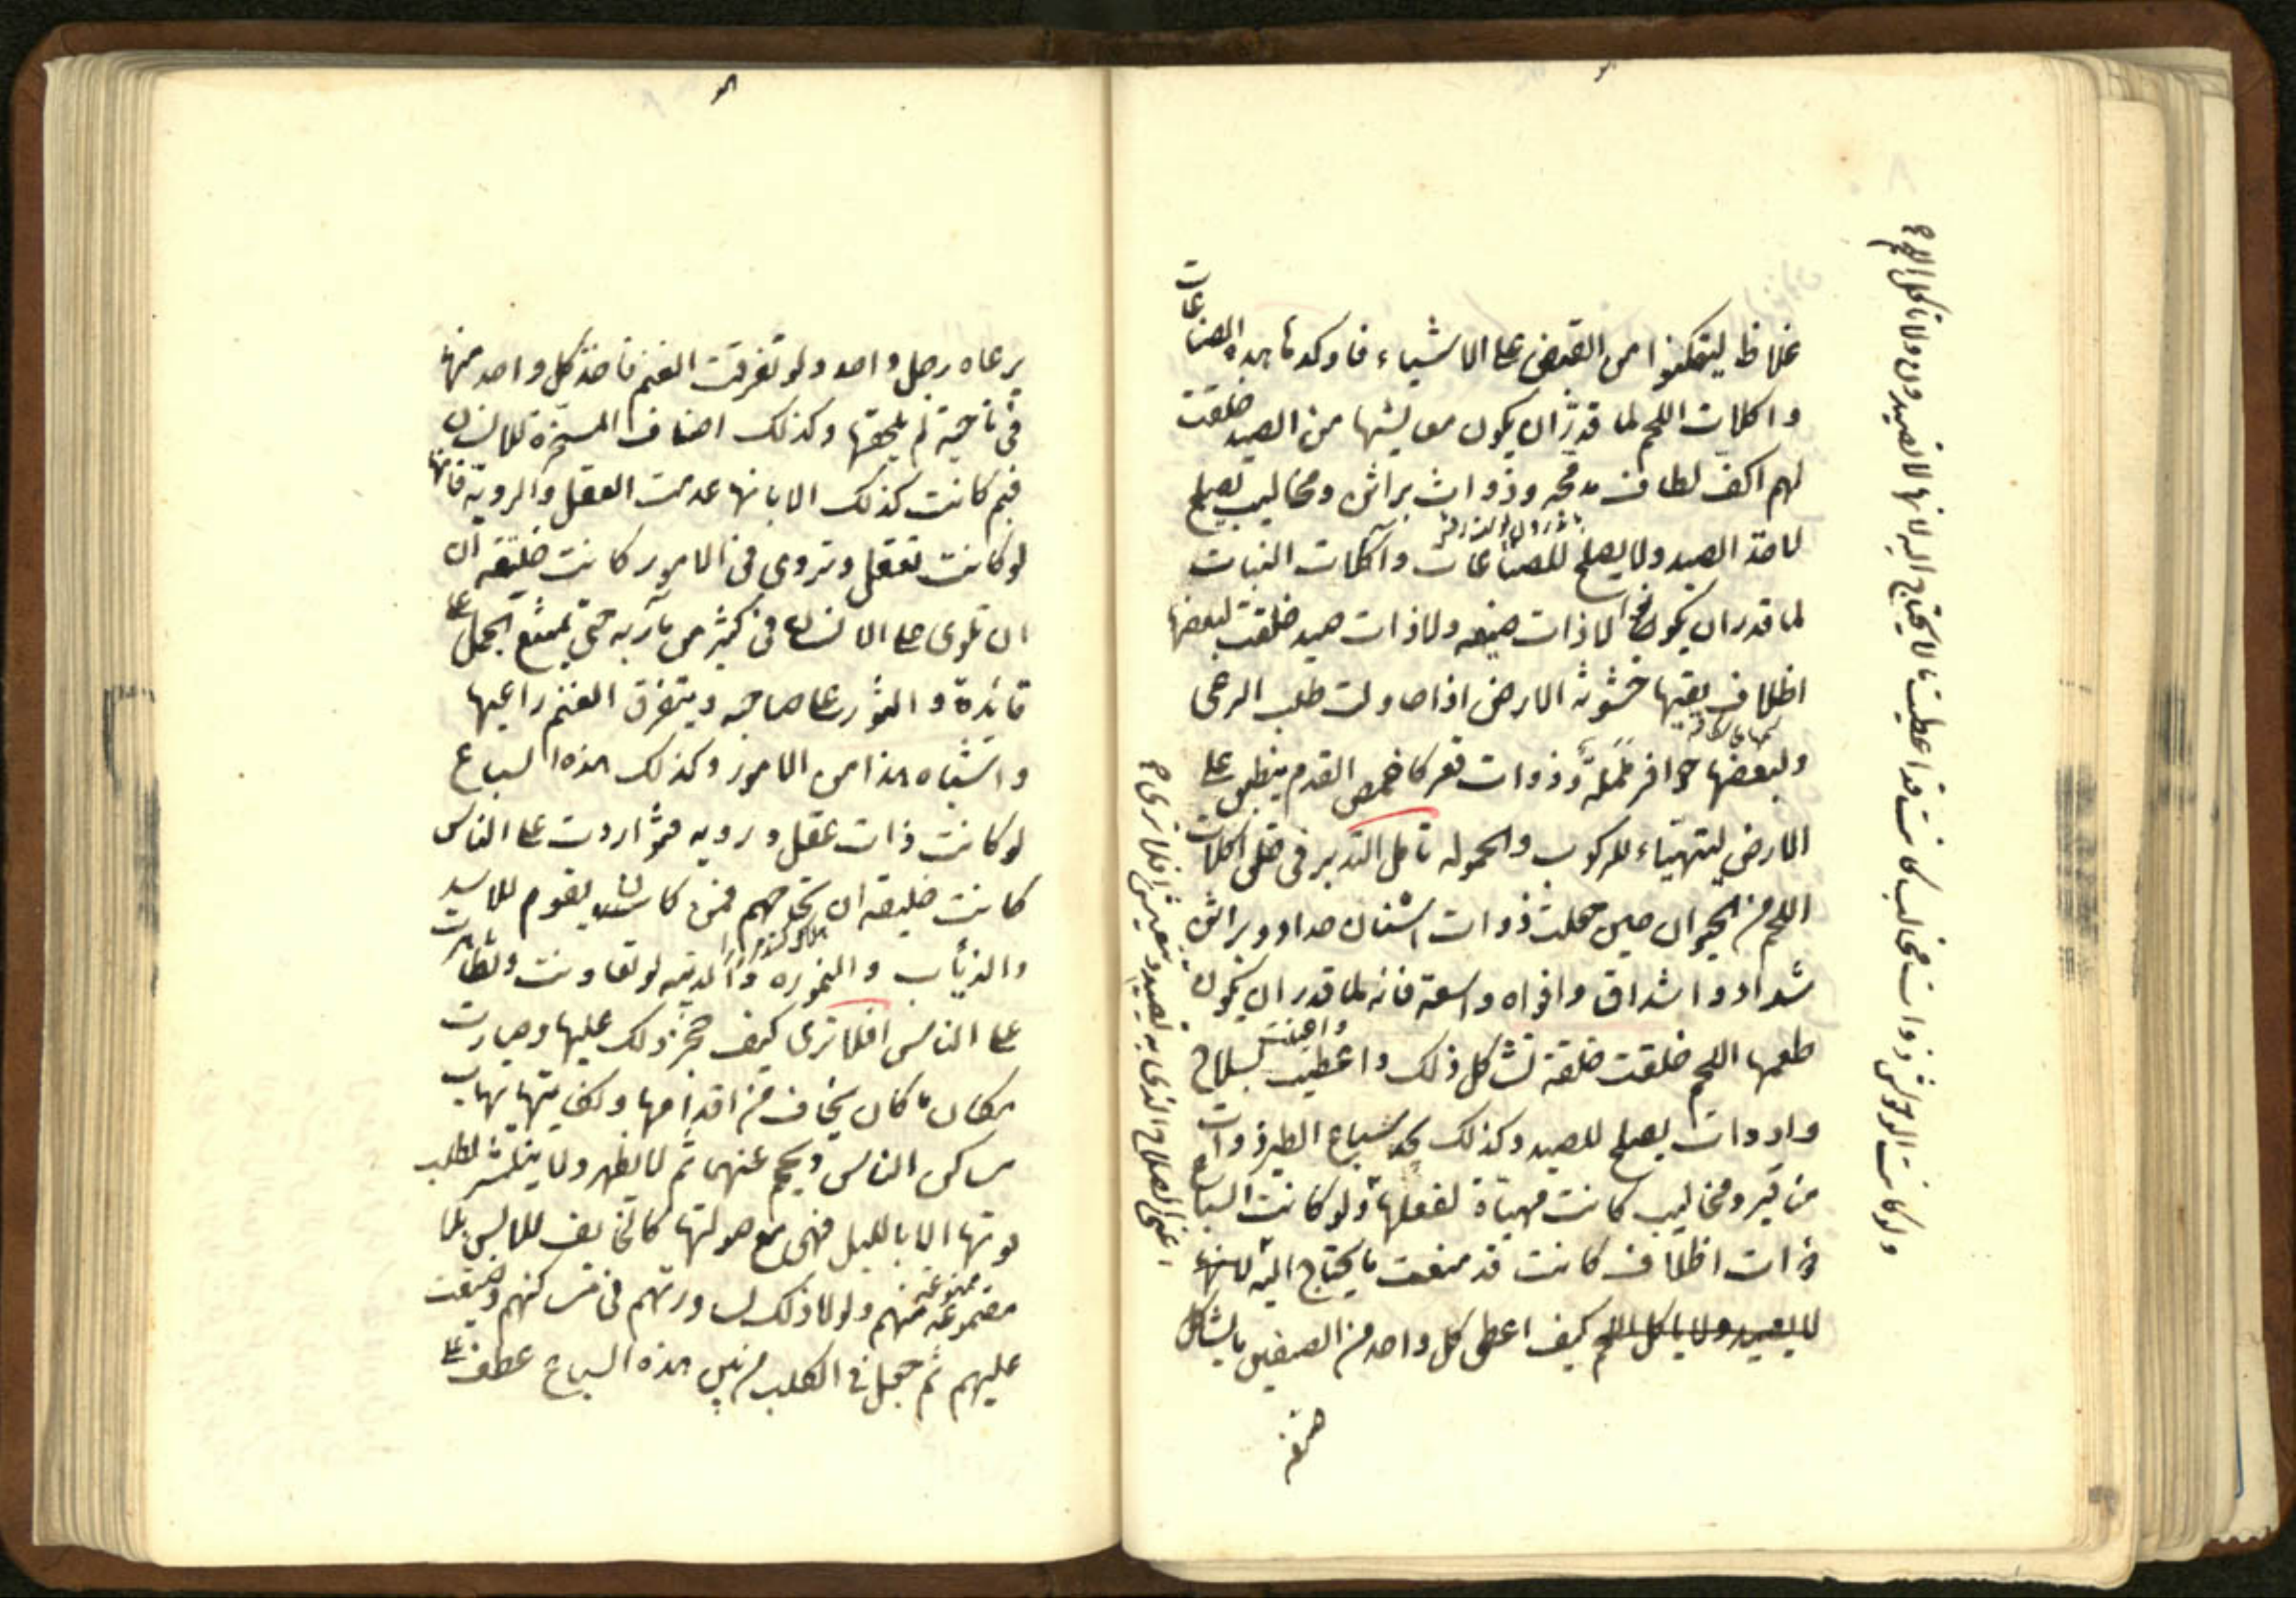 غلاظ ليتمكنوا من القبض على الاشياء فاوكد ما هذه الصناعات
واكلات اللحم لما قدّر ان يكون معايشها من الصيد خلقت
لهم اكف لطاف مدمجه وذوات براثن ومخاليب يصلح
لاخذ الصيد ولا يصلح للصناعات وآكلات النبات
لما قدر ان يكون لا ذات صنعه ولا ذات صيد خلقت لبعضها
اظلاف يقيها خشونة الارض اذا حاولت طلب الرعى
ولبعضها حوافر ململة ذوات قعر كاخمص القدم ينطبق على
الارض ليتهياء للركوب والحموله تامل التدبير فى خلق اكلات
اللحم من الحيوان حين جعلت ذوات اسنان حداد وبراثن
شداد واشداق وافواه واسعة فانه لما قدر ان يكون
طعمها اللحم خلقت خلقة تشاكل ذلك واعطيت بسلاح
وادوات يصلح للصيد وكذلك تجد سباع الطير ذوات
مناقير ومخاليب كانت مهياة لفعلها ولو كانت السباع
ذوات اظلاف كانت قد منعت ما يحتاج اليه لانها
لا يصيد ولا ياكل اللحم كيف اعطى كل واحد من الصنفين ما يشاكل
صنفه
ولو كانت الوحوش ذوات مخالب كانت قد اعطيت ما لا يحتاج اليه لانها لا تصيد ولا تاكل اللحم
اعنى السلاح الذى به تصيد وتعيش افلا ترى
يرعاه رجل واحد ولو تفرقت الغنم فاخذ كل واحد منها
فى ناحية لم يلحقها وكذلك اصناف المسخرة للانسان
فبم كانت كذلك الا بانها عدمت العقل والروية فانها
لو كانت تعقل وتروى فى الامور كانت خليقه ان
ان تلوى على الانسان فى كثير من مآربه حتى يمتنع الجمل على
قائده والثور على صاحبه ويتفرق الغنم راعيها
واشباه هذا من الامور وكذلك هذه السباع
لو كانت ذات عقل ورويه فتوازرت على الناس
كانت خليقه ان تجتاحهم فمن كان يقوم للاسد
والذياب والنموره والدببه لو تعاونت وتظاهرت
على الناس افلا ترى كيف حجر ذلك عليها وصارت
مكان ما كان يخاف من اقدامها ولكنها تهاب
مساكن الناس ويحجم عنها ثم لا تظهر ولا ينتشر لطلب
قوتها الا بالليل فهى مع صولتها كالخايف للانس بلا
مقموعه منهم ولولا ذلك لساورتهم فى مساكنهم وضيقت
عليهم ثم جعل فى الكلب من بين هذه السباع عطف على